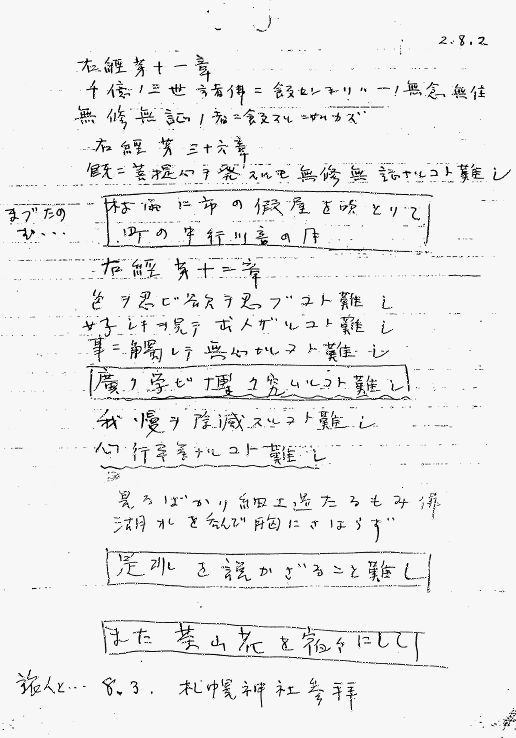 2.8.2
右経第十一章
千億ノ三世諸佛ニ飯センヨリハ一ノ無念無住
無修無証ノ者ニ飯スルニシカズ
右経第三十六章
既ニ菩提心ヲ発スルモ無修無証ナルコト難し
まぶたの
む・・・
に市の假屋を とりて
町の中行川音の月
右経第十二章
色ヲ忍ビ欲ヲ忍ブコト難し
好シキヲ見テ求メザルコト難し
事ニ觸レテ無心ナルコト難し
廣ク学ビ博ク究ムルコト難し
我慢ヲ除滅スルコト難し
心行平等ナルコト難し
見るばかり細工過たるもみ俵
湖水を呑んで胸にさはらず
是非を説かざること難し
また茶山花を宿々にして
旅人と… 8.3. 札幌神社参拝